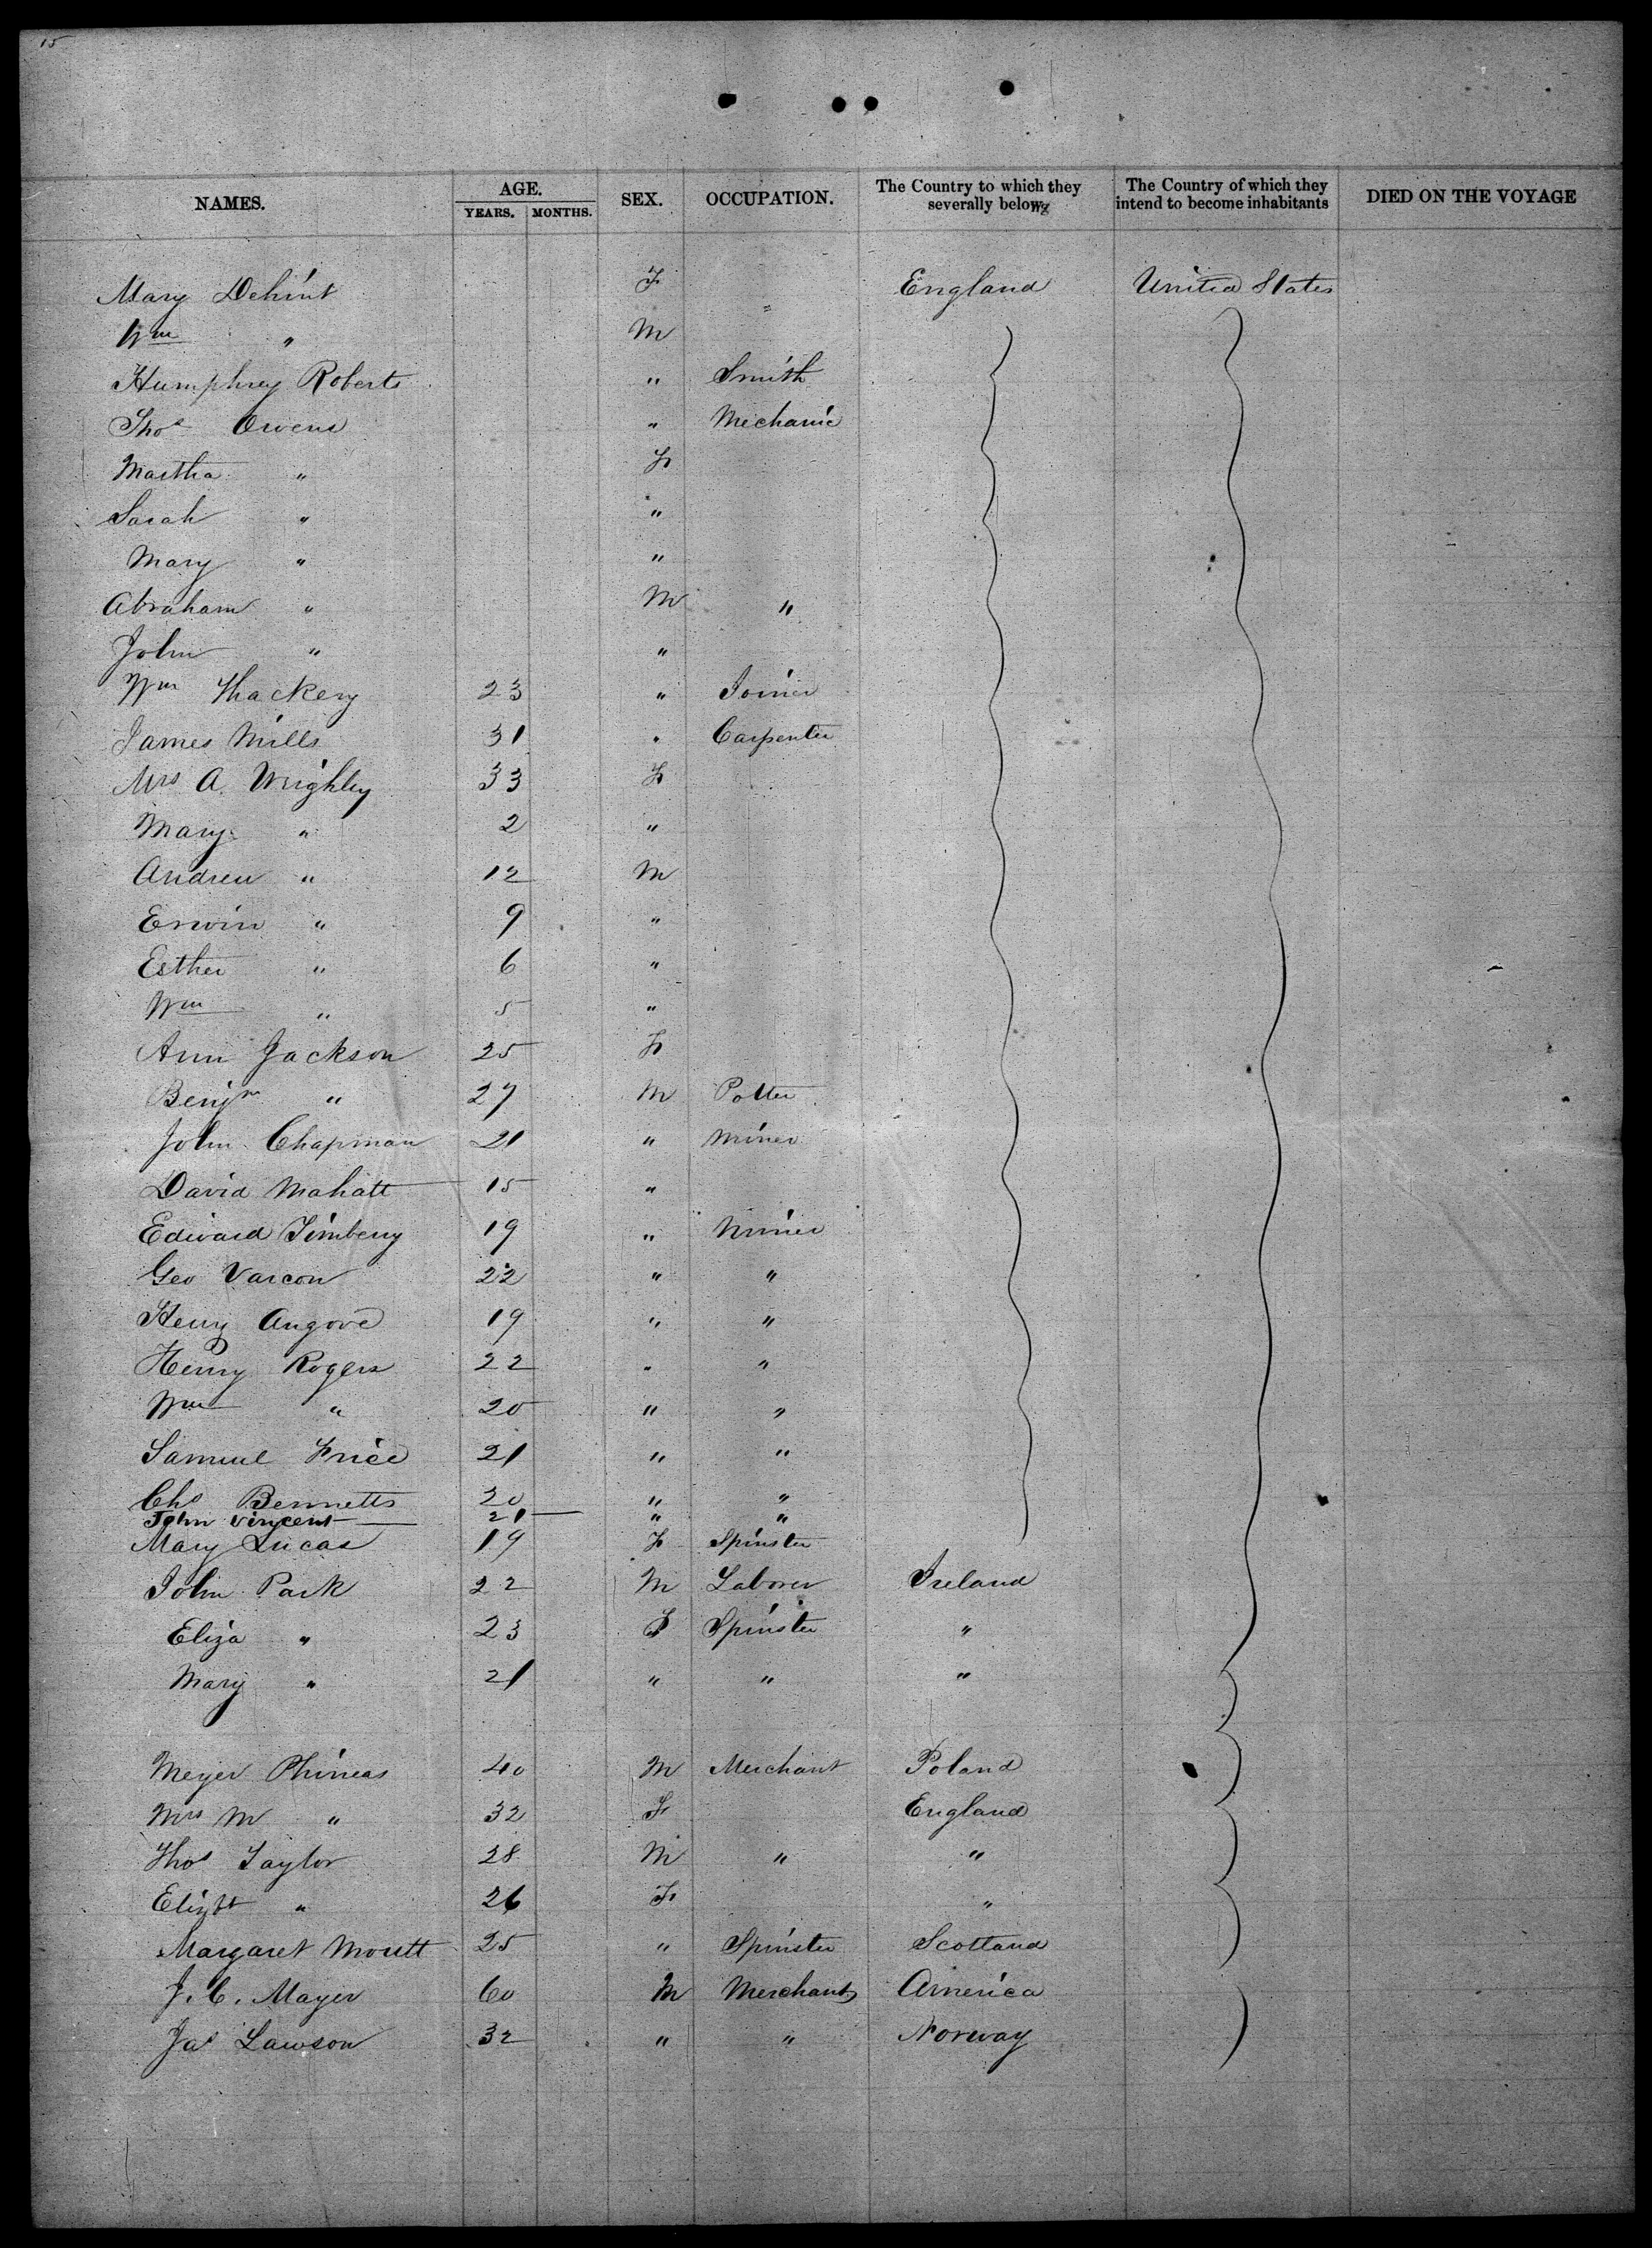 15
NAMES. AGE. YEARS. MONTHS. SEX. OCCUPATION. The Country to which they severally belong The Country of which they intend to become inhabitants DIED ON THE VOYAGE
Mary Dehint F " England United States
Wm " M
Humphrey Roberts " Smith
Thos Owens " Mechanic
Martha " F
Sarah " "
Mary " "
Abraham " M "
John " "
Wm Thackery 23 " Joiner
James Mills 31 " Carpenter
Mrs A. Wrighley 33 F
Mary " 2 "
Andrew " 12 M
Erwin " 9 "
Esther " 6 "
Wm " 5 "
Ann Jackson 25 F
Benjn " 27 M Potter
John Chapman 21 " Miner
David Mahatt 15 "
Edward Timbery 19 " Miner
Geo Varcon 22 " "
Henry Angove 19 " "
Henry Rogers 22 " "
Wm " 20 " "
Samuel Price 21 " "
Chs Bennetts 20 " "
John Vincent 21 " "
Mary Lucas 19 F Spinster
John Park 22 M Laborer Ireland
Eliza " 23 F Spinster "
Mary " 21 " " "
Meyer Phineas 40 M Merchant Poland
Mrs M " 32 F England
Thos Taylor 28 M " "
Elizbt " 26 F "
Margaret 25 " Spinster Scotland
J. C. Mayer 60 M Merchant America
Jas Lawson 32 " " Norway